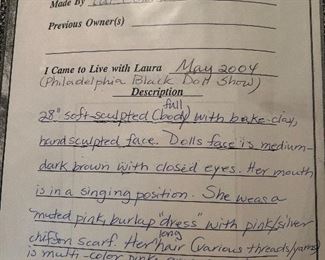 Made By
Previous Owner(s)
I Came to Live with Laura May 2004
(Philadelphia Black Doll Show)
Description
full
28" soft-sculpted (body) with bake-clay,
handsculpted face. Dolls face is medium-
dark brown with closed eyes. Her mouth
is in a singing position. She weas a
muted pink, burlap "dress" with pink/silver
chiffon scarf. Her long hair (various threads/yarns)
is multi-color pinks